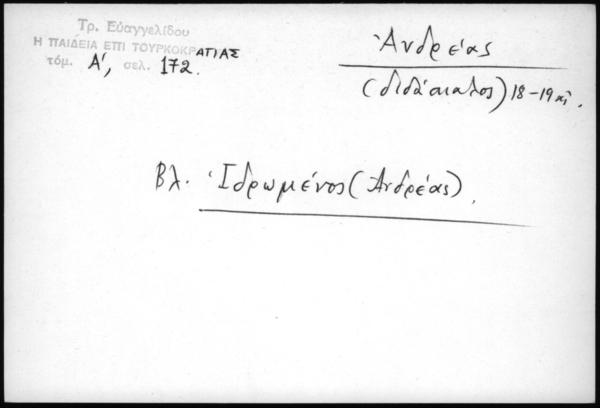 Τρ. Εὐαγγελίδου
Η ΠΑΙΔΕΙΑ ΕΠΙ ΤΟΥΡΚΟΚΡΑΤΙΑΣ
τόμ. Α', σελ. 172.
Ἀνδρέας
(διδάσκαλος) 18-19 αἰ.
Βλ. Ἰδρωμένος (Ἀνδρέας).